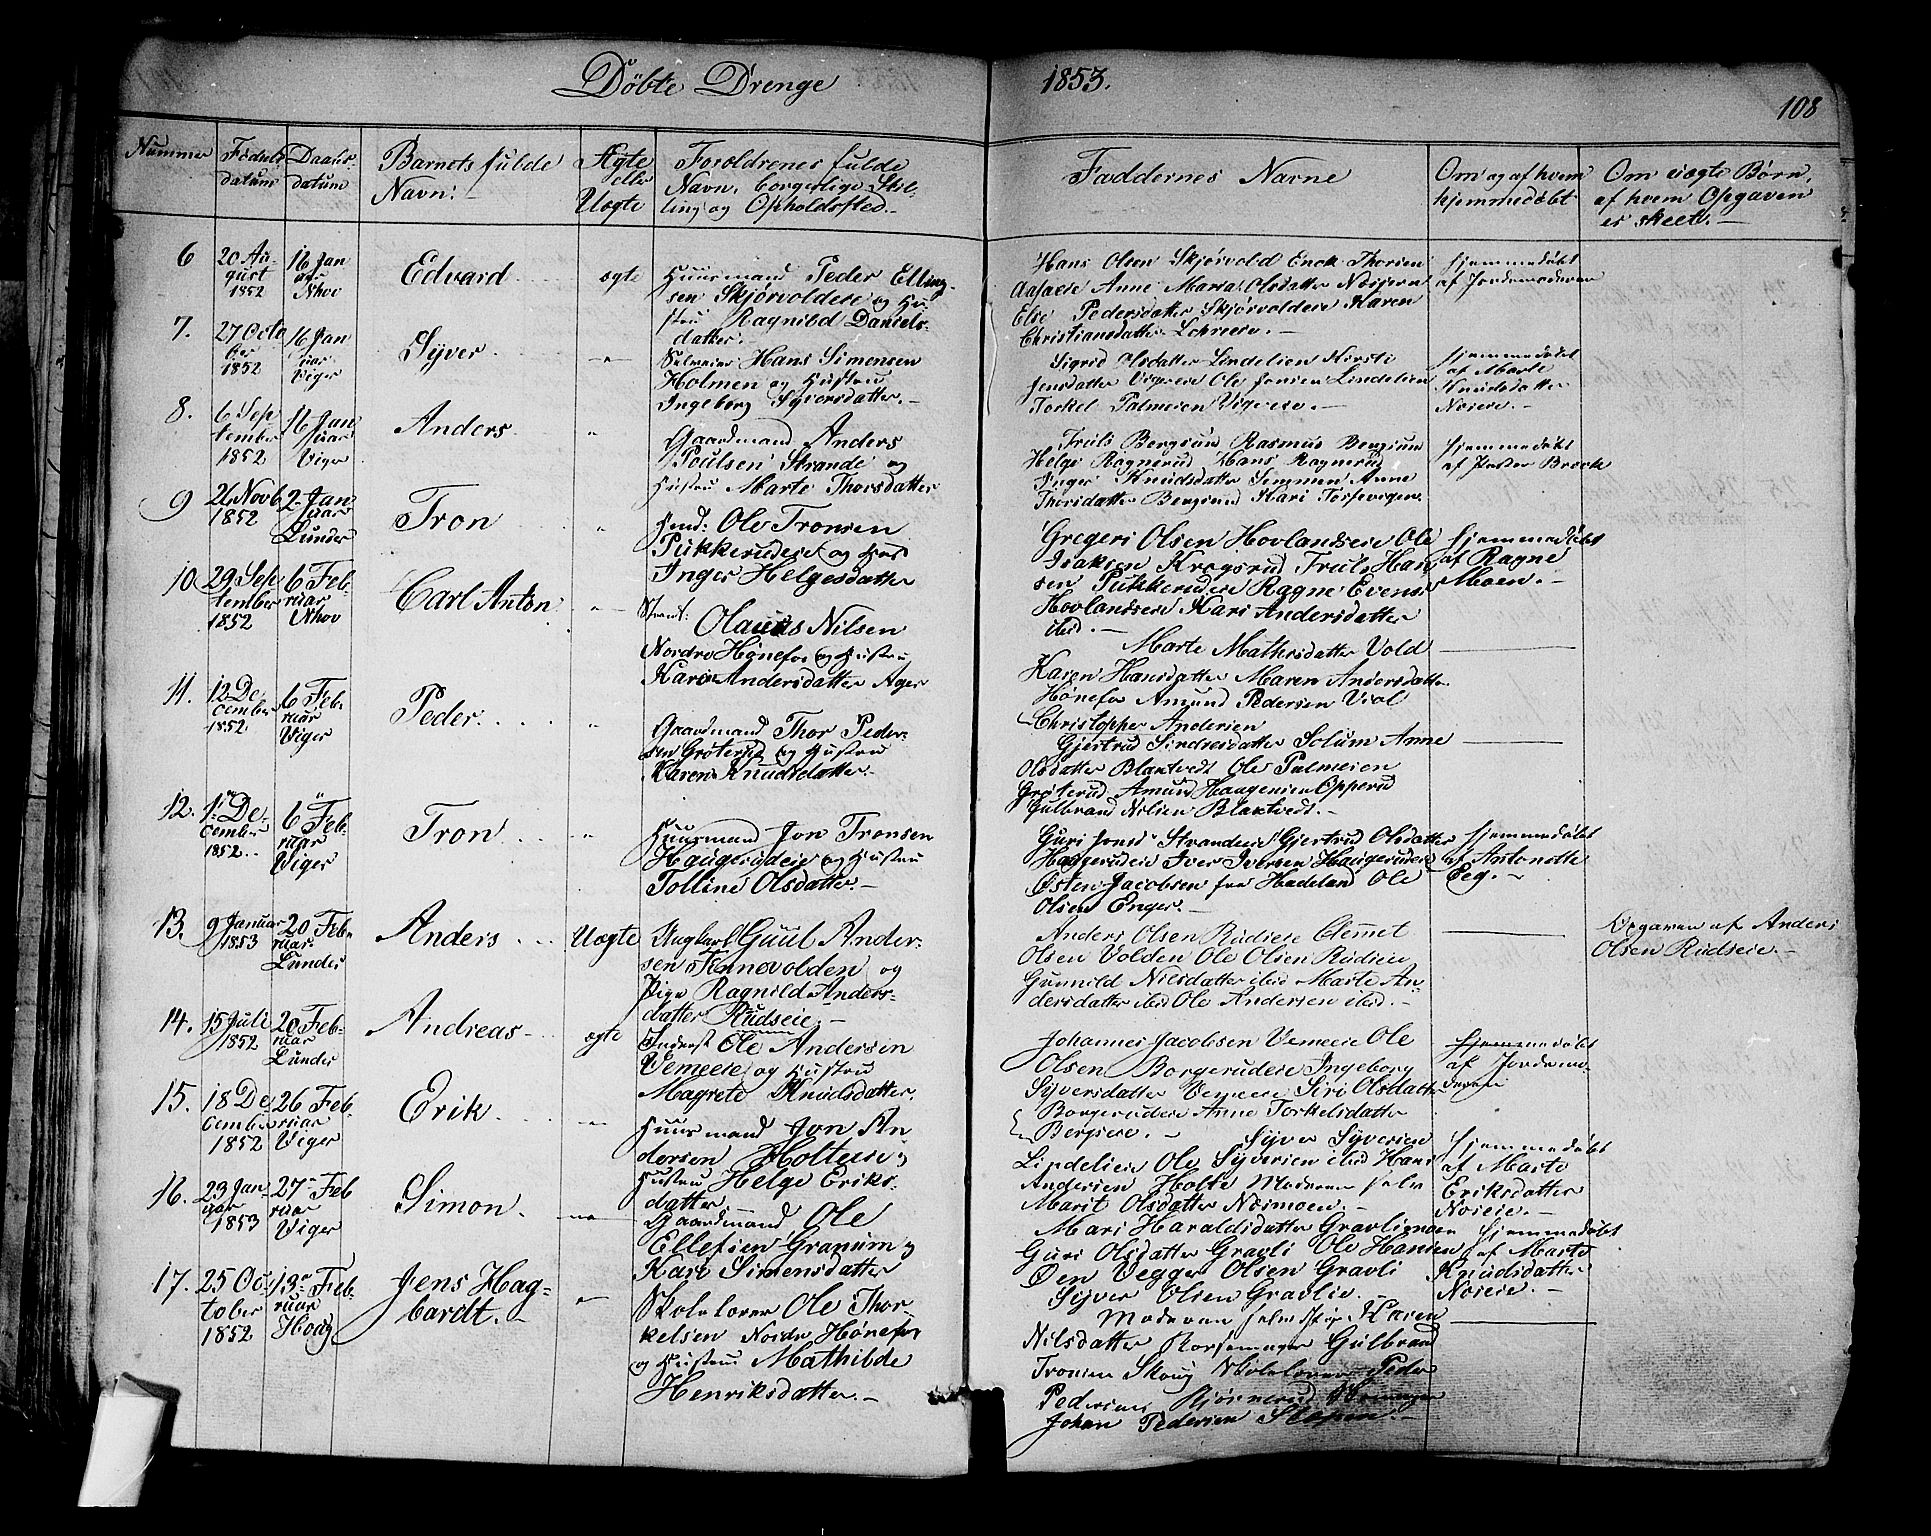 Döbte Drenge 1853.
108
Nummer
Födsels
datum
Daabs
datum
Barnets fulde
Navn:
Ægte
eller
Uægte
Forældrenes fulde
Navn, borgerlige Stil-
ling og Opholdssted.-
Faddernes Navne
Om og af hvem
hjemmedöbt
Om uægte Børn,
af hvem Opgaven
er skeet.-
6
20 Au-
gust
1852
16 Jan
uar
Nhov
Edvard
ægte
Huusmand Peder Elling-
sen Skjørvoldeie og Hu
stru Ragnild Daniels-
datter.
Hans Olsen Skjørvold Enok Thorsen
Aasaeie Anne Maria Olsdatter
Else Pedersdatter Skjørvoldeie Karen
Christiansdatter
Hjemmedöbt
af Jordemoderen
7.
27 Octo
ber
1852
16 Jan
uar
Viger
Syver
Hans Simensen
Holmen og Hustru
Ingeborg Syversdatter.-
Sigrid Olsdatter Lindelien Kirsti
Jensdatter Vigereie Ole Jensen Lindelien
Torkel Palmesen Vigereie.-
Hjemmedöbt
af Marte
Knudsdatter
Noieie.-
8.
6 Sep
tember
1852
16 Jan
uar
Viger
Anders
Gaardmand Anders
Poulsen Strande og
Hustru Marte Thorsdatter
Truls Bergsund Rasmus Bergsund
Helge Ragnerud Hans Ragnerud
Inger Knudsdatter Semmen Anne
Thorsdatter Bergsund Kari
Hjemmedöbt
af Peder Brock
9
26 Novb
1852
2 Jan
uar
Lunder
Tron
Ole Tronsen
Pukkerudeie og Hus
Inger Helgesdatter
Gregers Olsen Hovlandseie Ole
Isaksen Krogsrud Truls Han
sen Pukkerudeie Ragne Evens
Hovlandseie Kari Andersdatter
ibid.-
Hjemmedöbt
af Ragne
Moen.-
10.
29 Sep
tember
1852
6 Feb-
ruar
Nhov
Carl Anton
Olaus Nilsen
Nordre Hønefos og Hustru
Kari Andersdatter Ager
Marte Mathisdatter Vold
Karen Hansdatter Maren Andersdatter
Hønefos Amund Pedersen Viol
Christopher Andersen
11.
12 De-
cember
1852
6 Feb-
ruar
Viger
Peder
Gaardmand Thor Peder-
sen Groterud og Hustru
Karen Knudsdatter.-
Gjertrud Sindresdatter Solum Anne
Olsdatter Blaktvedt Ole Palmesen
Groterud Amund Haagensen Opperud
Gulbrand Nilsen Blaktvedt.-
12.
1 De-
cember
1852.
6 Feb-
ruar
Viger
Tron
Huusmand Jon Tronsen
Haugerudeie og Hustru
Tolline Olsdatter.-
Guri Jonsd Strandeie Gjertrud Olsdatter
Haugerudeie Iver Iversen Haugerudeie
Østen Jacobsen fra Hadeland Ole
Olsen Enger.-
Hjemmedöbt
af Antonette
Eeg.-
13.
9 Januar
1853
20 Feb-
ruar
Lunder
Anders
Uægte
Ungkarl Guul Ander-
sen Tennøvolden og
Pige Ragnild Anders-
datter Rudseie.-
Anders Olsen Rudseie Clemmet
Olsen Volden Ole Olsen Rudseie
Gunnild Nilsdatter ibid Marte An-
dersdatter ibid Ole Andersen ibid.-
Opgaven af Anders
Olsen Rudseie.-
14.
15 Juli
1852
20 Feb-
ruar
Lunder
Andreas
ægte
Inderst Ole Andersen
Vemeeie og Hustru
Magrete Knudsdatter.
Johannes Jacobsen Vemeeie Ole
Olsen Borgerudeie Ingeborg
Syversdatter Vemeeie Siri Olsdatter
Borgerudeie Anne Torkelsdatter
Bergseie.-
Hjemmedöbt
af Jordemo-
deren
15.
18 De
cember
1852
26 Feb-
ruar
Viger
Erik
Huusmand Jon An
dersen Holteeie og
Hustru Helge Eriks-
datter
Syver Syversen
Lindelieie Ole Syversen ibid Hans
Andersen Holte Moderen selv
Marit Olsdatter Noimoen.-
Hjemmedöbt
af Marte
Eriksdatter
Noieie.-
16.
23 Jan-
uar
1853
27 Feb
ruar
Viger
Simon.
Gaardmand Ole
Ellefsen Granum og
Kari Simensdatter
Mari Haraldsdatter Gravligmoen
Guri Olsdatter Gravli Ole Hansen
Øen Vegger Olsen Gravli
Syver Olsen Gravlie.-
Hjemmedöbt
af Marte
Knudsdatter
Noieie.-
17.
25 Oc-
tober
1852
13 Feb-
ruar
Houg
Jens Hag-
bardt.-
Skolelærer Ole Thor-
kelsen Nordre Hønefos
og Hustru Mathilde
Henriksdatter.-
Moderen selv Pige Karen
Nilsdatter Gulbrand
Tronsen Skoug Skolelærer Peder
Pedersen
Johan Pedersen Stapen.-